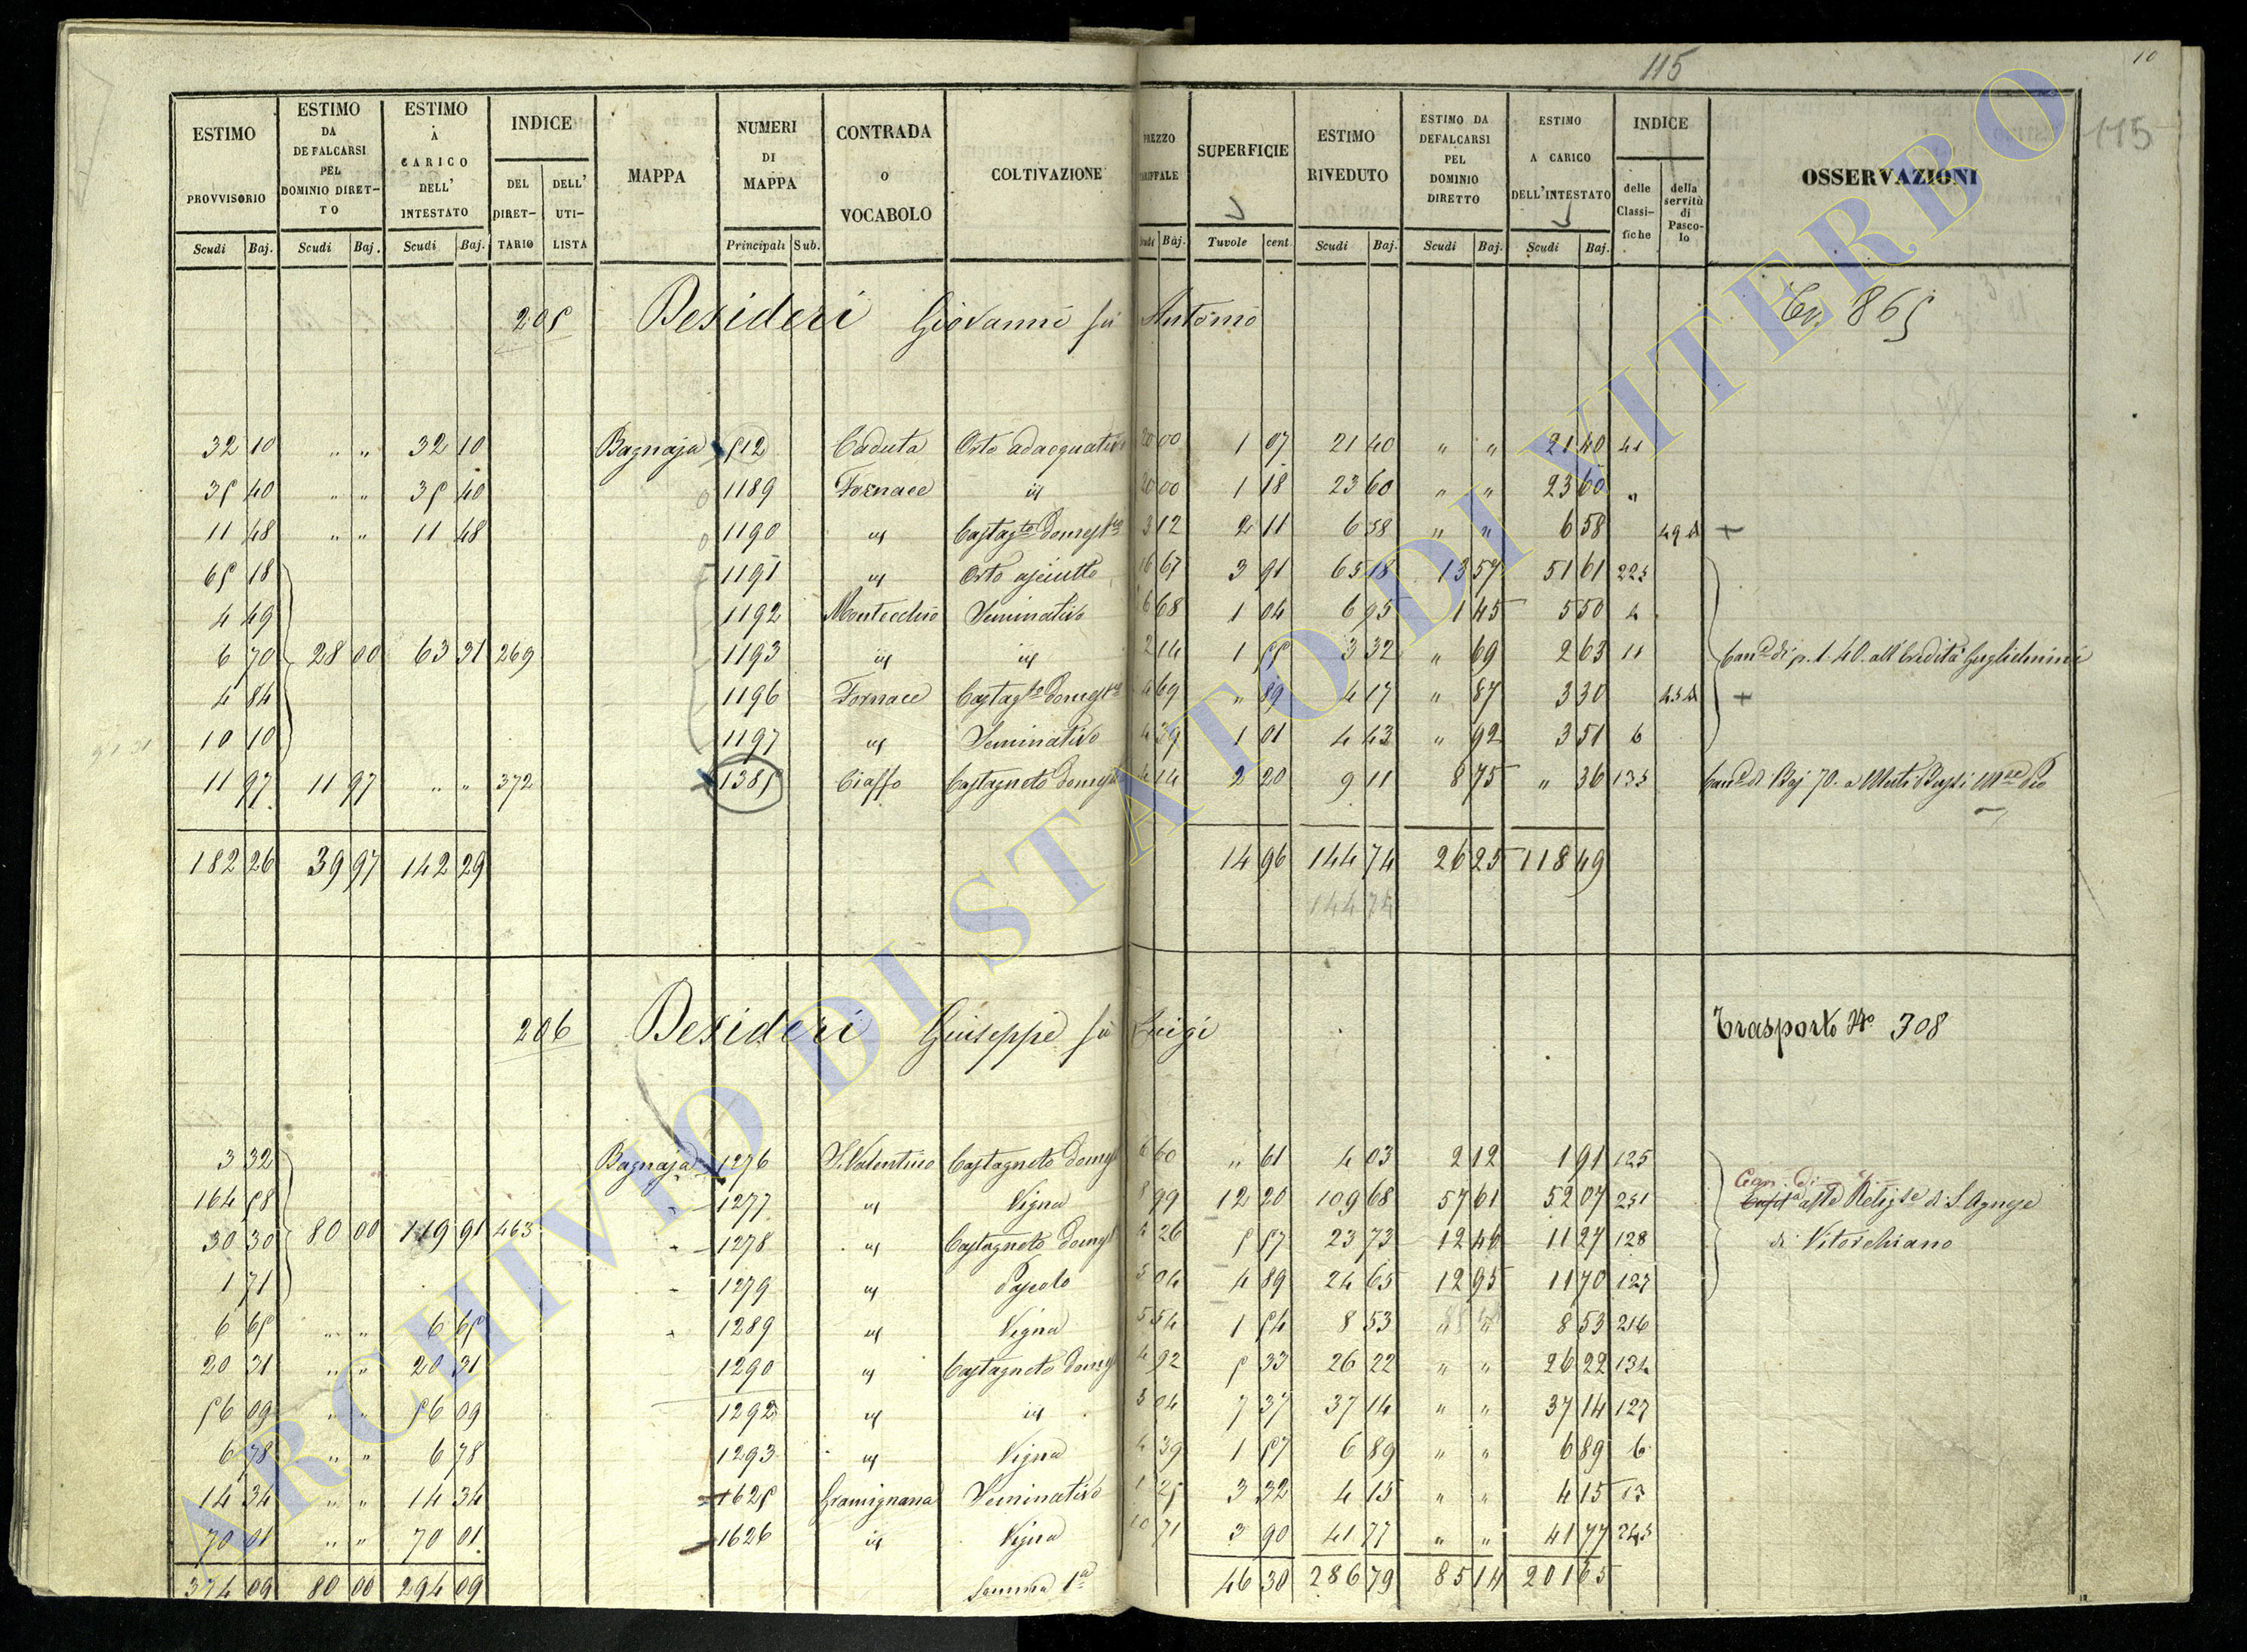 115
10
115
ESTIMO PROVVISORIO | ESTIMO DA DEFALCARSI PEL DOMINIO DIRETTO | ESTIMO À CARICO DELL' INTESTATO | INDICE | MAPPA | NUMERI DI MAPPA | CONTRADA O VOCABOLO | COLTIVAZIONE | PREZZO TARIFFALE | SUPERFICIE | ESTIMO RIVEDUTO | ESTIMO DA DEFALCARSI PEL DOMINIO DIRETTO | ESTIMO A CARICO DELL'INTESTATO | INDICE | OSSERVAZIONI
DEL DIRETTARIO | DELL' UTILISTA | delle Classifiche | della servitù di Pascolo
Scudi Baj. | Scudi Baj. | Scudi Baj. | Principali Sub. | Scudi Baj. | Tavole cent | Scudi Baj. | Scudi Baj. | Scudi Baj.
205 Desideri Giovanni fu Antonio 865
32 10 " " 32 10 Bagnaja 512 Caduta Orto adacquativo 20 00 1 07 21 40 " " 21 40 41
35 40 " " 35 40 1189 Fornace id 20 00 1 18 23 60 " " 23 60 "
11 48 " " 11 48 1190 id Castagto Domesco 3 12 2 11 6 58 " " 6 58 49 +
65 18 1191 id Orto asciutto 16 67 3 91 65 18 13 57 51 61 223
4 49 1192 Montecchio Seminativo 6 68 1 04 6 95 1 45 5 50 4
6 70 28 00 63 31 269 1193 id id 2 14 1 55 3 32 " 69 2 63 11 Cane di p. 1.40. all'Eredità Guglielmini
4 84 1196 Fornace Castagto Domesco 4 69 " 89 4 17 " 87 3 30 +
10 10 1197 id Seminativo 4 39 1 01 4 43 " 92 3 51 6
11 97 11 97 " " 372 1385 Ciaffo Castagneto Domes 4 14 2 20 9 11 8 75 " 36 133 Cane di Baj 70. a
182 26 39 97 142 29 14 96 144 74 26 25 118 49
144 74
206 Desideri Giuseppe fu Luigi Trasporto No 308
3 32 Bagnaja 1276 S. Valentino Castagneto Domes 6 60 " 61 4 03 2 12 1 91 125
164 58 1277 id Vigna 8 99 12 20 109 68 57 61 52 07 231 Can. di alle Religse di S. Agnese
30 30 80 00 119 91 463 1278 id Castagneto Domes 4 26 5 57 23 73 12 46 11 27 128 di Vitorchiano
1 71 1279 id Pascolo 5 04 4 89 24 65 12 95 11 70 127
6 65 " " 6 65 1289 id Vigna 5 54 1 54 8 53 " " 8 53 216
20 31 " " 20 31 1290 id Castagneto Domes 4 92 5 33 26 22 " " 26 22 134
56 09 " " 56 09 1292 id id 5 04 7 37 37 14 " " 37 14 127
6 78 " " 6 78 1293 id Vigna 4 39 1 57 6 89 " " 6 89 6
14 34 " " 14 34 1625 Gramignana Seminativo 1 25 3 32 4 15 " " 4 15 13
70 01 " " 70 01 1626 id Vigna 10 71 3 90 41 77 " " 41 77 243
374 09 80 00 294 09 Somma 1a 46 30 286 79 85 14 201 65
ARCHIVIO DI STATO DI VITERBO